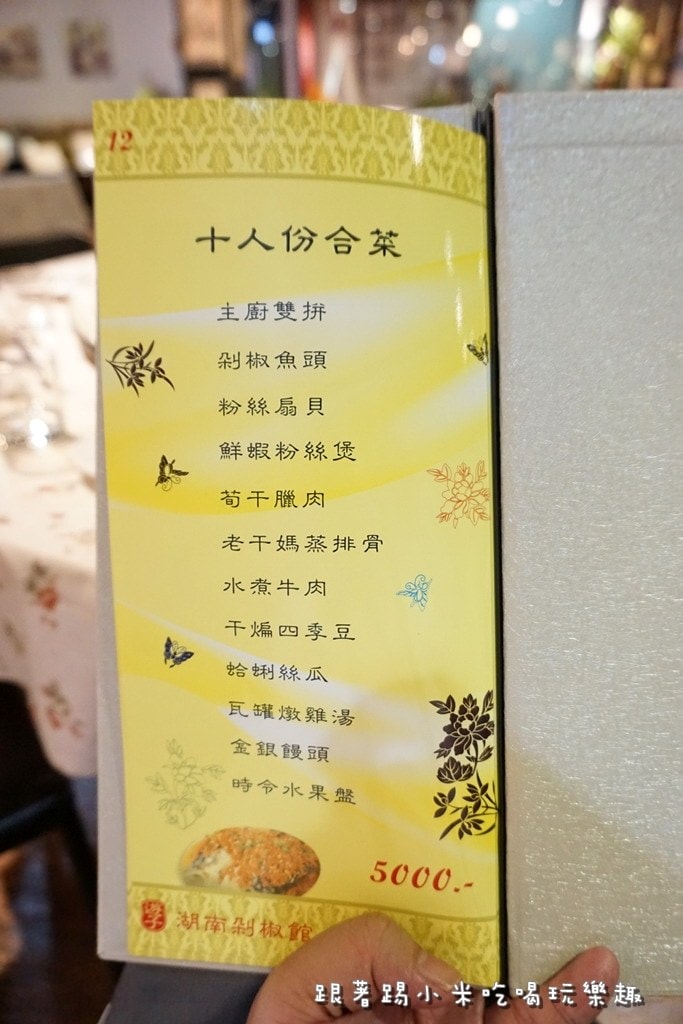 12
十人份合菜
主廚雙拼
剁椒魚頭
粉絲扇貝
鮮蝦粉絲煲
荀干臘肉
老干媽蒸排骨
水煮牛肉
干煸四季豆
蛤蜊絲瓜
瓦罐燉雞湯
金銀饅頭
時令水果盤
5000.-
湖南剁椒館
跟著踢小米吃喝玩樂趣